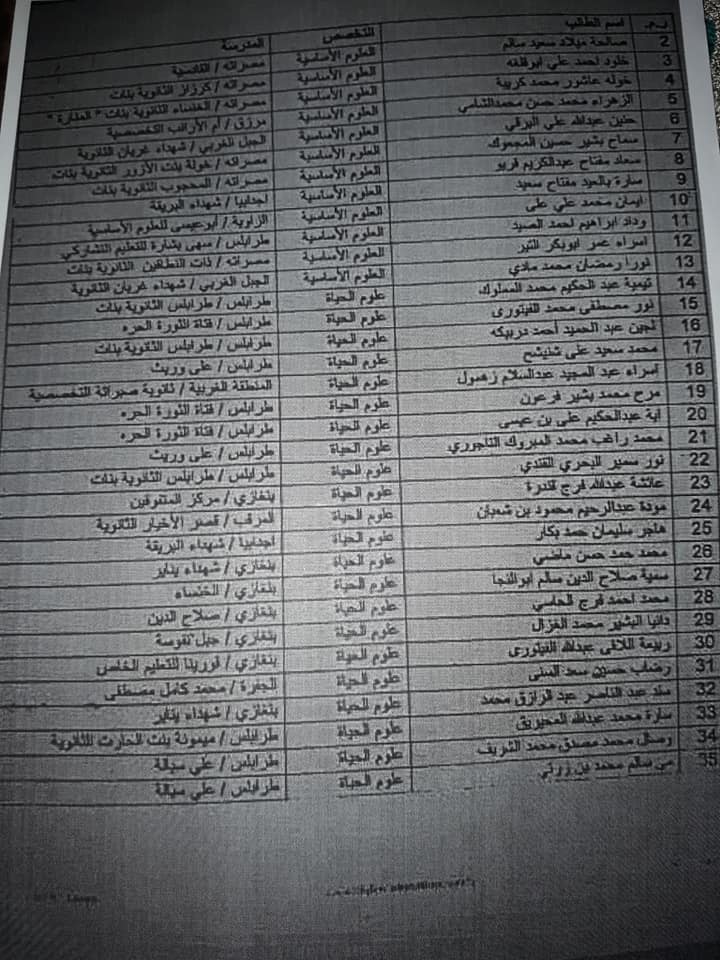 ر.م. اسم الطالب التخصص المدرسة
2 صالحة ميلاد سعيد سالم العلوم الأساسية مصراته / القادسية
3 خلود احمد علي ابوفلغه العلوم الأساسية مصراته / كرزاز الثانوية بنات
4 خوله عاشور محمد كريبة العلوم الأساسية مصراته / الخنساء الثانوية بنات " المنارة "
5 الزهراء محمد حسن محمدالشامي العلوم الأساسية مرزق / أم الأرانب التخصصية
6 حنين عبدالله علي البرقي العلوم الأساسية الجبل الغربي / شهداء غريان الثانوية
7 سماح بشير حسين العلوم الأساسية مصراته / خولة بنت الأزور الثانوية بنات
8 سعاد مفتاح عبدالكريم فريو العلوم الأساسية مصراته / المحجوب الثانوية بنات
9 سارة بالعيد مفتاح سعيد العلوم الأساسية اجدابيا / شهداء البريقة
10 ايمان محمد علي علي العلوم الأساسية الزاوية / أبوعيسى للعلوم الأساسية
11 وداد ابراهيم احمد الصيد العلوم الأساسية طرابلس / سهى بشارة للتعليم التشاركي
12 اسراء عمر ابوبكر التير العلوم الأساسية مصراته / ذات النطاقين الثانوية بنات
13 نورا رمضان محمد مادي العلوم الأساسية الجبل الغربي / شهداء غريان الثانوية
14 تيمية عبد الحكيم محمد المملوك علوم الحياة طرابلس / طرابلس الثانوية بنات
15 نور مصطفى محمد الفيتورى علوم الحياة طرابلس / فتاة الثورة الحره
16 لجين عبد الحميد أحمد دربيكه علوم الحياة طرابلس / طرابلس الثانوية بنات
17 محمد سعيد علي شنيشح علوم الحياة طرابلس / علي وريث
18 اسراء عبد المجيد عبدالسلام زهمول علوم الحياة المنطقة الغربية / ثانوية صبراتة التخصصية
19 مرح محمد بشير فرعون علوم الحياة طرابلس / فتاة الثورة الحره
20 اية عبدالحكيم على بن عيسى علوم الحياة طرابلس / فتاة الثورة الحره
21 محمد راغب محمد المبروك التاجوري علوم الحياة طرابلس / علي وريث
22 نور سمير البحري القندي علوم الحياة طرابلس / طرابلس الثانوية بنات
23 عائشة عبدالله فرج قدرة علوم الحياة بنغازي / مركز المتفوقين
24 مودة عبدالرحيم محمود بن شعبان علوم الحياة المرقب / قصر الأخيار الثانوية
25 هاجر سليمان حمد بكار علوم الحياة اجدابيا / شهداء البريقة
26 محمد حمد حسن ماضي علوم الحياة بنغازي / شهداء يناير
27 سمية صلاح الدين سالم ابوالنجا علوم الحياة بنغازي / الخنساء
28 محمد احمد فرج الحاسي علوم الحياة بنغازي / صلاح الدين
29 دانيا البشير محمد الغزال علوم الحياة بنغازي / جبل نفوسة
30 ربيعة اللافى عبدالله الفيتورى علوم الحياة بنغازي / لورينا للتعليم الخاص
31 رضاب حسين سعد السني علوم الحياة الجفرة / محمد كامل مصطفى
32 سند عبد الناصر عبد الرازق محمد علوم الحياة بنغازي / شهداء يناير
33 سارة محمد عبدالله المحيريق علوم الحياة طرابلس / ميمونة بنت الحارث للثانوية
34 وصال محمد مصدق محمد الشريف علوم الحياة طرابلس / علي سيالة
35 مي سالم محمد بن زرتي علوم الحياة طرابلس / علي سيالة